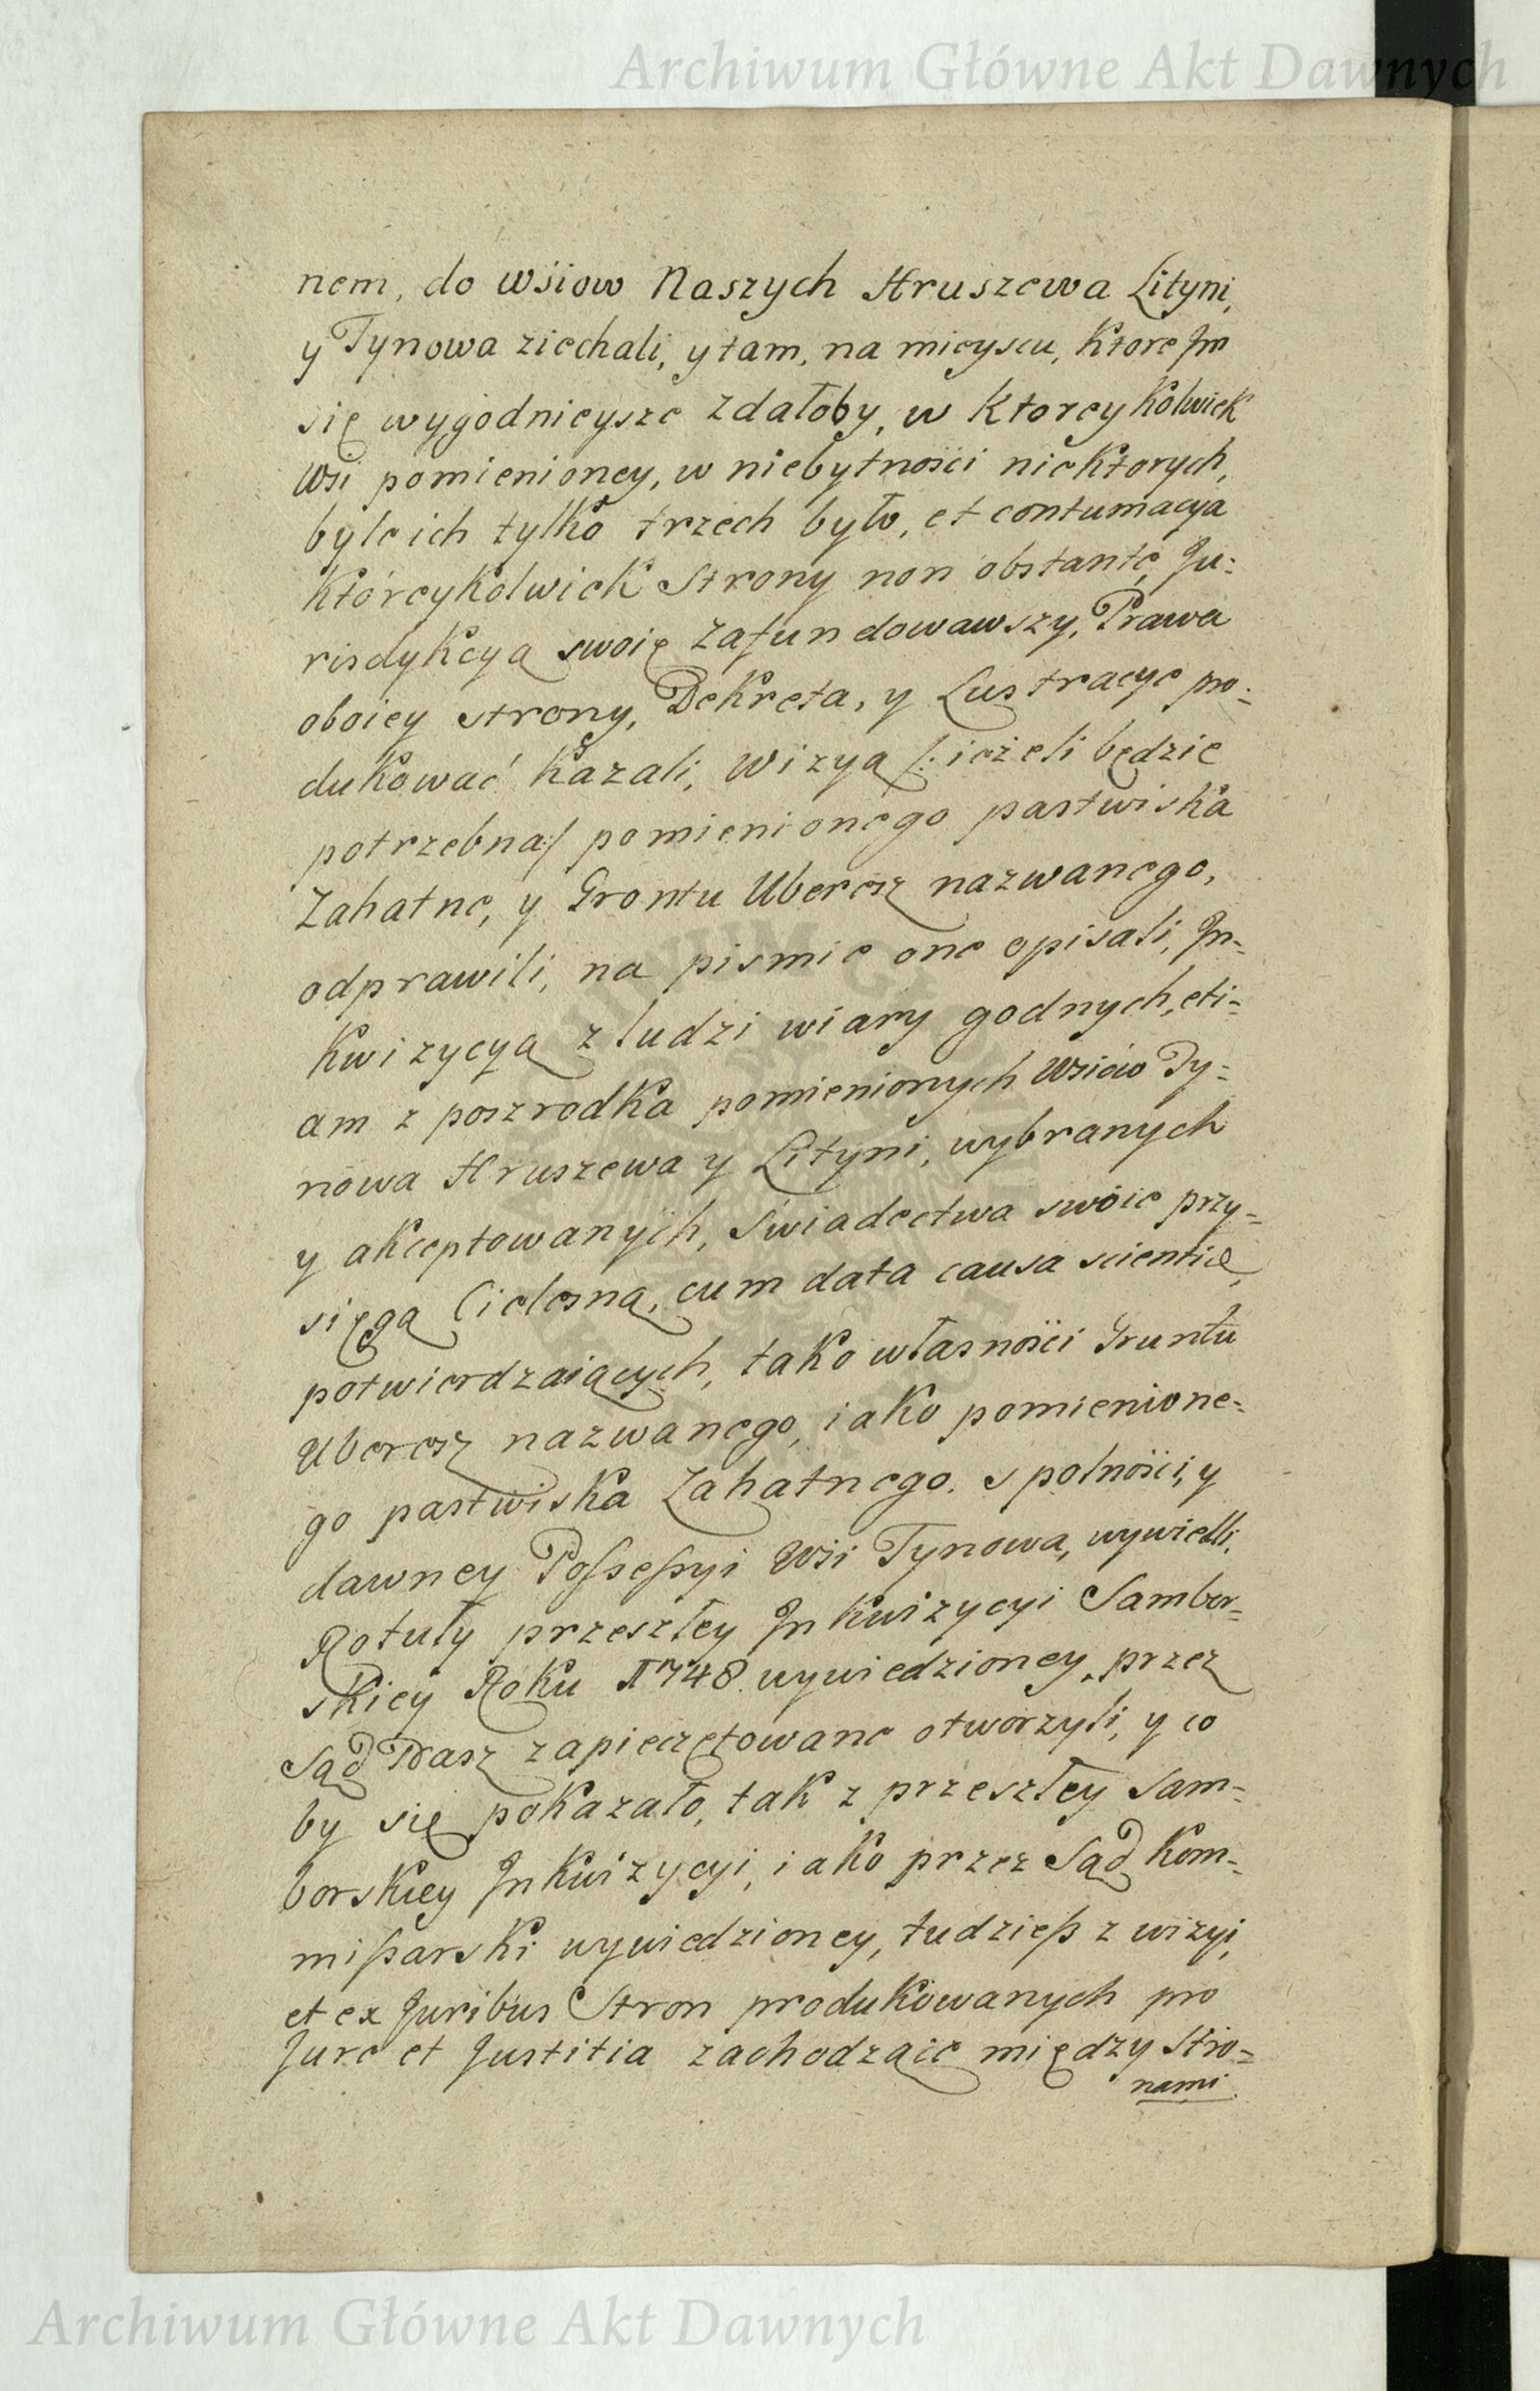 Archiwum Główne Akt Dawnych
nem, do wsiow Naszych Hruszewa Lityni,
y Tynowa ziechali, y tam, na mieyscu, ktore Im
się wygodnieysze zdałoby, w ktoreykolwiek
Wsi pomienioney, w niebytności niektorych,
byle ich tylko trzech było, et contumacya
którcykolwiek Strony non obstante, Ju:
risdykcyą swoię zafundowawszy, Prawa
oboiey strony, Dekreta, y Lustracye pro:
dukować kazali, Wizyą /: ieżeli będzie
potrzebna:/ pomienionego pastwiska
Zahatne, y Grontu Uberesz nazwanego,
odprawili, na pismie one opisali, In=
kwizycyą z ludzi wiary godnych, eti=
am z poszrodka pomienionych Wsiów Ty=
nowa Hruszewa y Lityni, wybranych
y akceptowanych, świadectwa swoie przy=
sięgą Cielesną, cum data causa scientiæ,
potwierdzaiących, tako własności Gruntu
Uberesz nazwanego, iako pomienione=
go pastwiska Zahatnego. spolności, y
dawney Possessyi Wsi Tynowa, wywiedli,
Rotuły przeszłey Inkwizycyi Sambor=
skiey Roku 1748. wywiedzioney, przez
Sąd Nasz zapieczętowane otworzyli, y co
by się pokazało, tak z przeszłey Sam=
borskiey Inkwizycyi, iako przez Sąd Kom=
missarski wywiedzioney, tudziesz z wizyi,
et ex Juribus Stron produkowanych pro
Jure et Justitia zachodzące między Stro=
nami.
Archiwum Główne Akt Dawnych